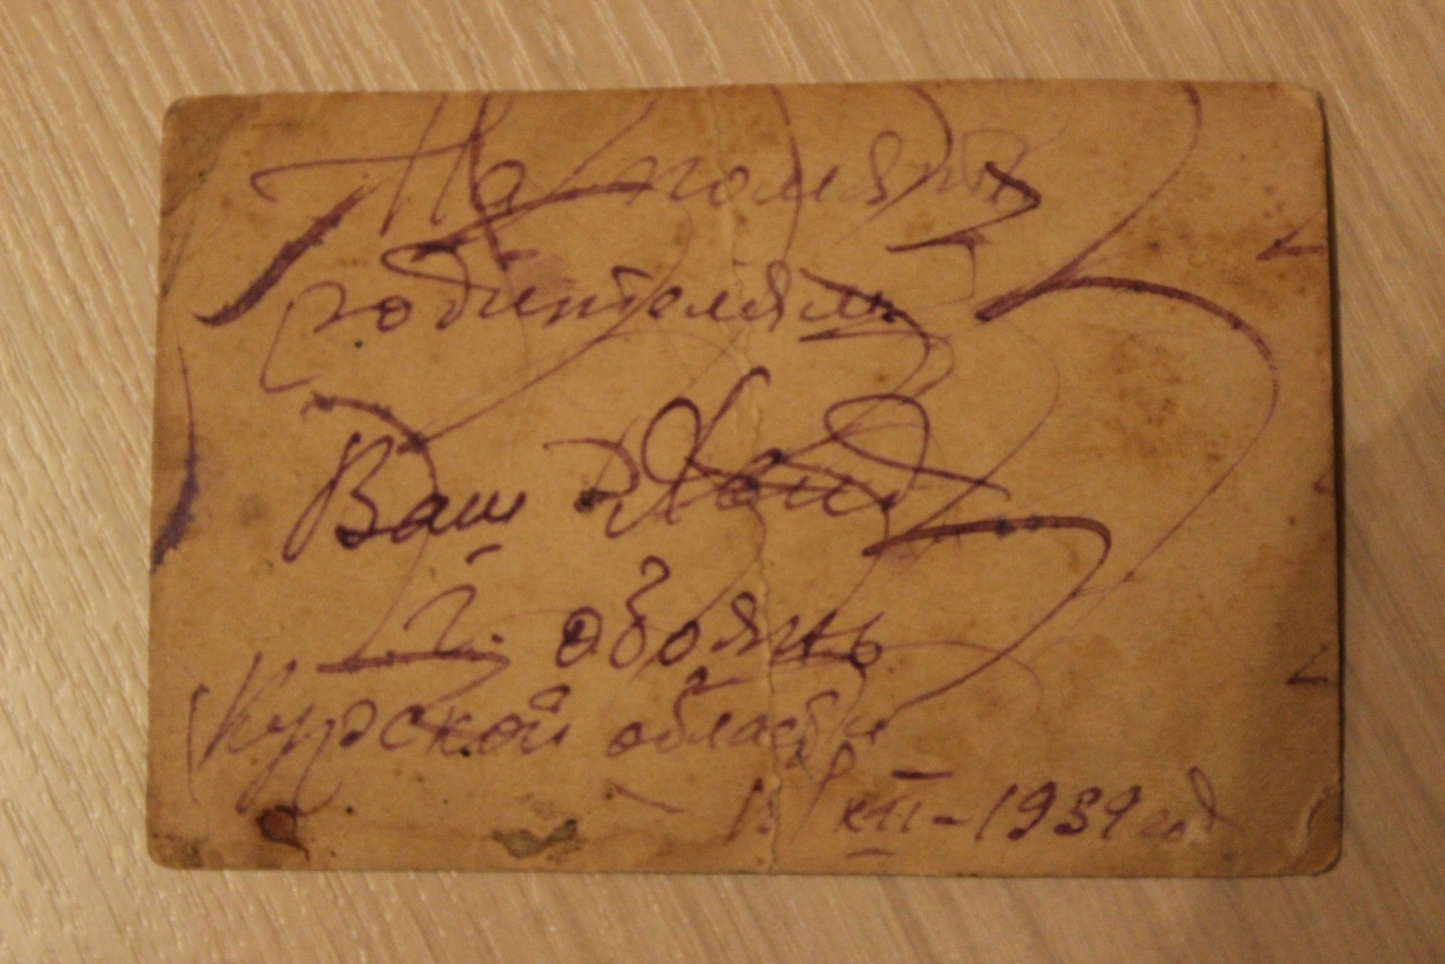 На память
родителям
Ваш
г. обоянь
Курской области
XII-1939 год